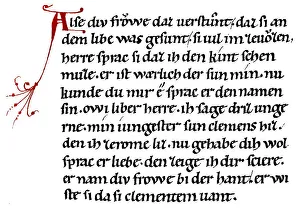 Alse div frǒwe daz verstůnt, daz si an
dem libe was gesunt, si vil im zevǒzen,
herre sprac si daz ih den kint sehen
muze. er ist warlich der sun min. nu
kunde du mir ê sprac er den namen
sin. owi liber herre. ih sage dirz unge
rne. min iungester sun clemens hiz.
den ih zerome liz. nu gehabe dih wol
sprac er liebe. den zeige ih dir sciere.
er nam div frowe bi der hant. er wi
ste si da si clementem vant.